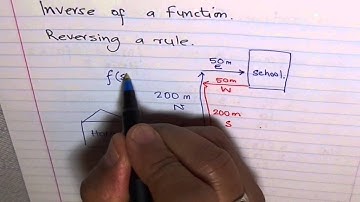 Inverse of a function.
Reversing a rule.
50m
E
School.
50m
W
f(
200m
N
200m
S